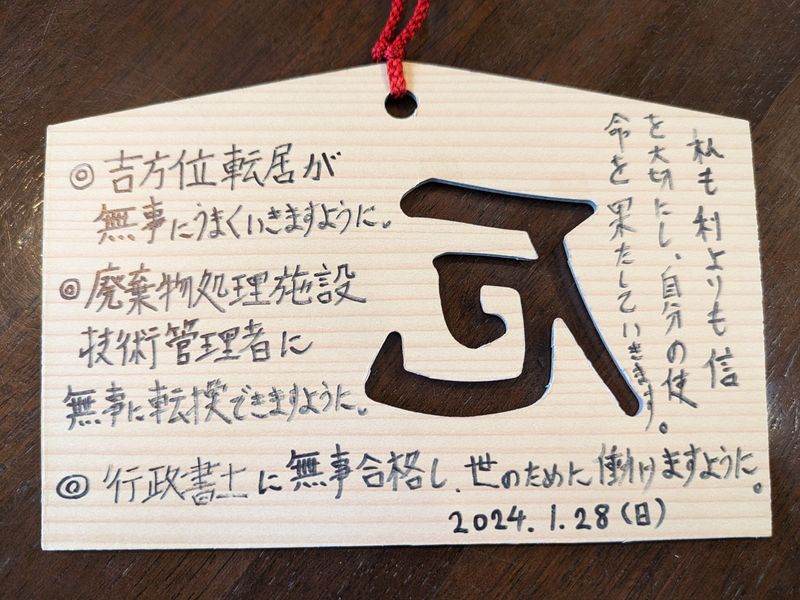 私も利よりも信
を大切にし、自分の使
命を果たしていきます。
◎吉方位転居が
無事にうまくいきますように。
◎廃棄物処理施設
技術管理者に
無事に転換できますように。
◎行政書士に無事合格し、世のために働けますように。
2024.1.28(日)